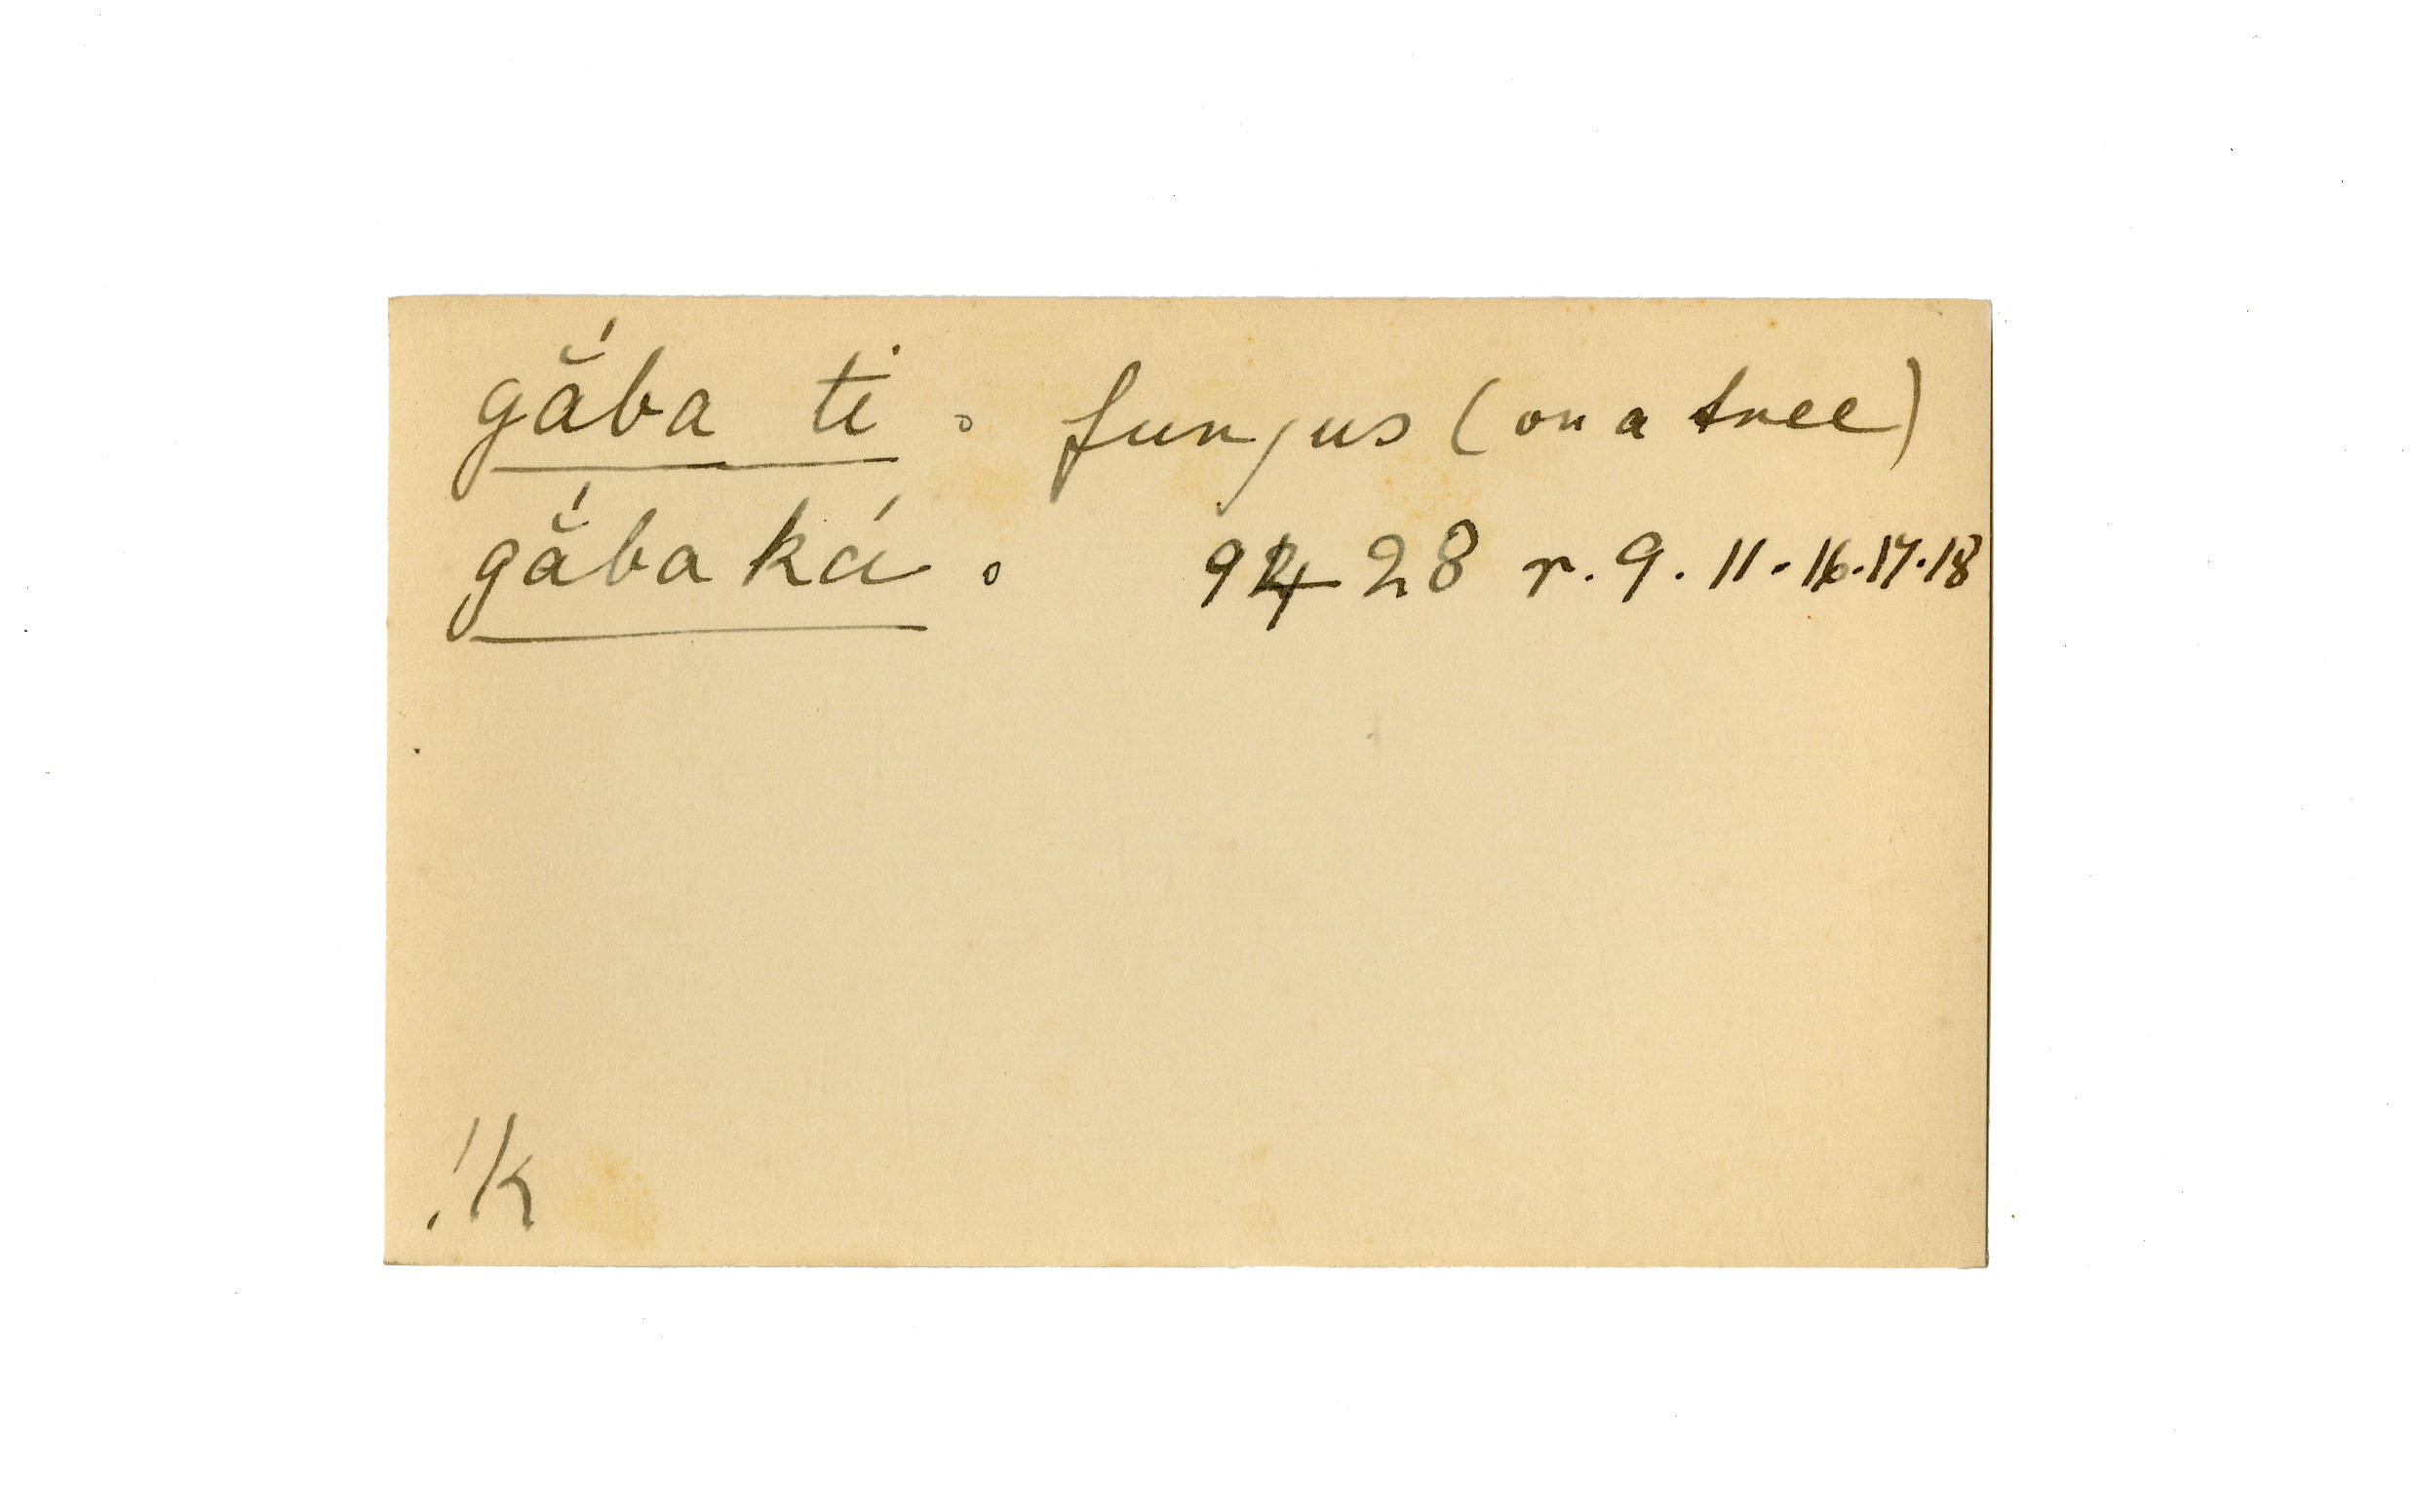 gắba ti . fungus (on a tree)
gắba ká . 9428 r. 9. 11. 16. 17. 18
!k